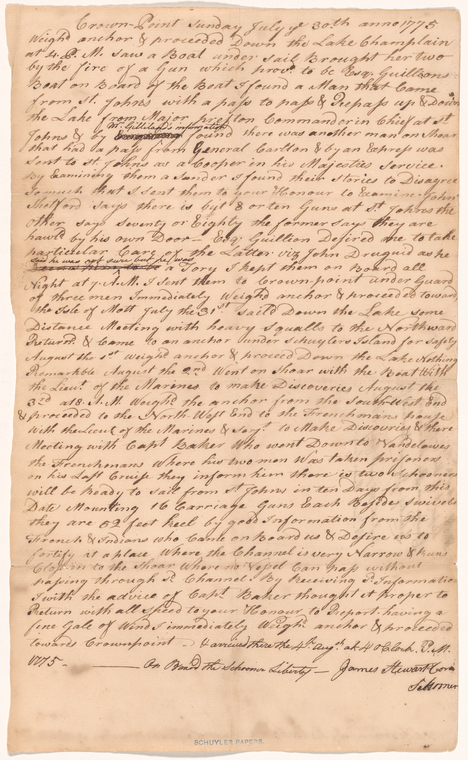 Crown-Point Sunday July ye 30th anno 1775
Weigh'd anchor & proceeded Down the Lake Champlain
at 4 P. M. Saw a Boat under Sail Brought her two
by the fire of a Gun which prov'd to be Esqr Guillions
Boat on Board of the Boat I found a Man that Came
from St. Johns with a pass to pass & Repass up & Down
the Lake from Major preston Commander in Chief at St
Johns & by Mr Gillilands information found there was another man on Shoar
that had a pass from General Carlton & by an Express was
Sent to St Johns as a Cooper in his Majesties Service.
By Examining them a Sunder I found their Stories to Disagree
So much that I Sent them to your Honour to Examin John
Shotford Says there is Six & or ten Guns at St Johns the
other Says Seventy or Eighty the former Says they are
hawl'd by his own Door Esqr Guillion Desired me to take
particular Care of the Latter viz John Druguid as he
said he was not sure but he was a Tory I kept them on Board all
Night at 7 A. M. I Sent them to Crown-point under Guard
of three men Immediately Weigh'd anchor & proceeded towards
the Isle of Mott July the 31st Sail'd Down the Lake some
Distance Meeting with heavy Squalls to the Northward
Return'd & Came to an anchor under Schuylers Island for Safety
August the 1st weigh'd anchor & proceed Down the Lake Nothing
Remarkble August the 2nd Went on Shoar with the Boat With
the Lieut of the Marines to make Discoveries August the
3d at 8 A. M. Weigh'd the anchor from the South West End
& proceeded to the North West End to the Frenchmans house
With the Lieut of the Marines & to Make Discoveries & there
Meeting with Capt Baker Who went Down to
the Frenchmans Where his two men Was taken prisoners
on his Last Cruise they inform him there is two Schooners
will be Ready to Sail from St Johns in ten Days from this
Date Mounting 16 Carriage Guns Each Besides Swivels
they are 52 foot keel by good Information from the
French & Indians who Came on Board us & Desire us to
fortify at a place Where the Channel is very Narrow &
Close in to the Shoar Where no Vessel Can pass without
passing through ye Channel. By Receiving ye Information
I with the advice of Capt Baker thought it proper to
Return with all Speed to your Honour to Report having a
fine Gale of Wind I immediately Weigh'd anchor & proceeded
towards Crownpoint & arrived there the 4th Augst at 4 oClock P. M.
1775 - On Board the Schooner Liberty - James Stewart
Schooner
SCHUYLER PAPERS